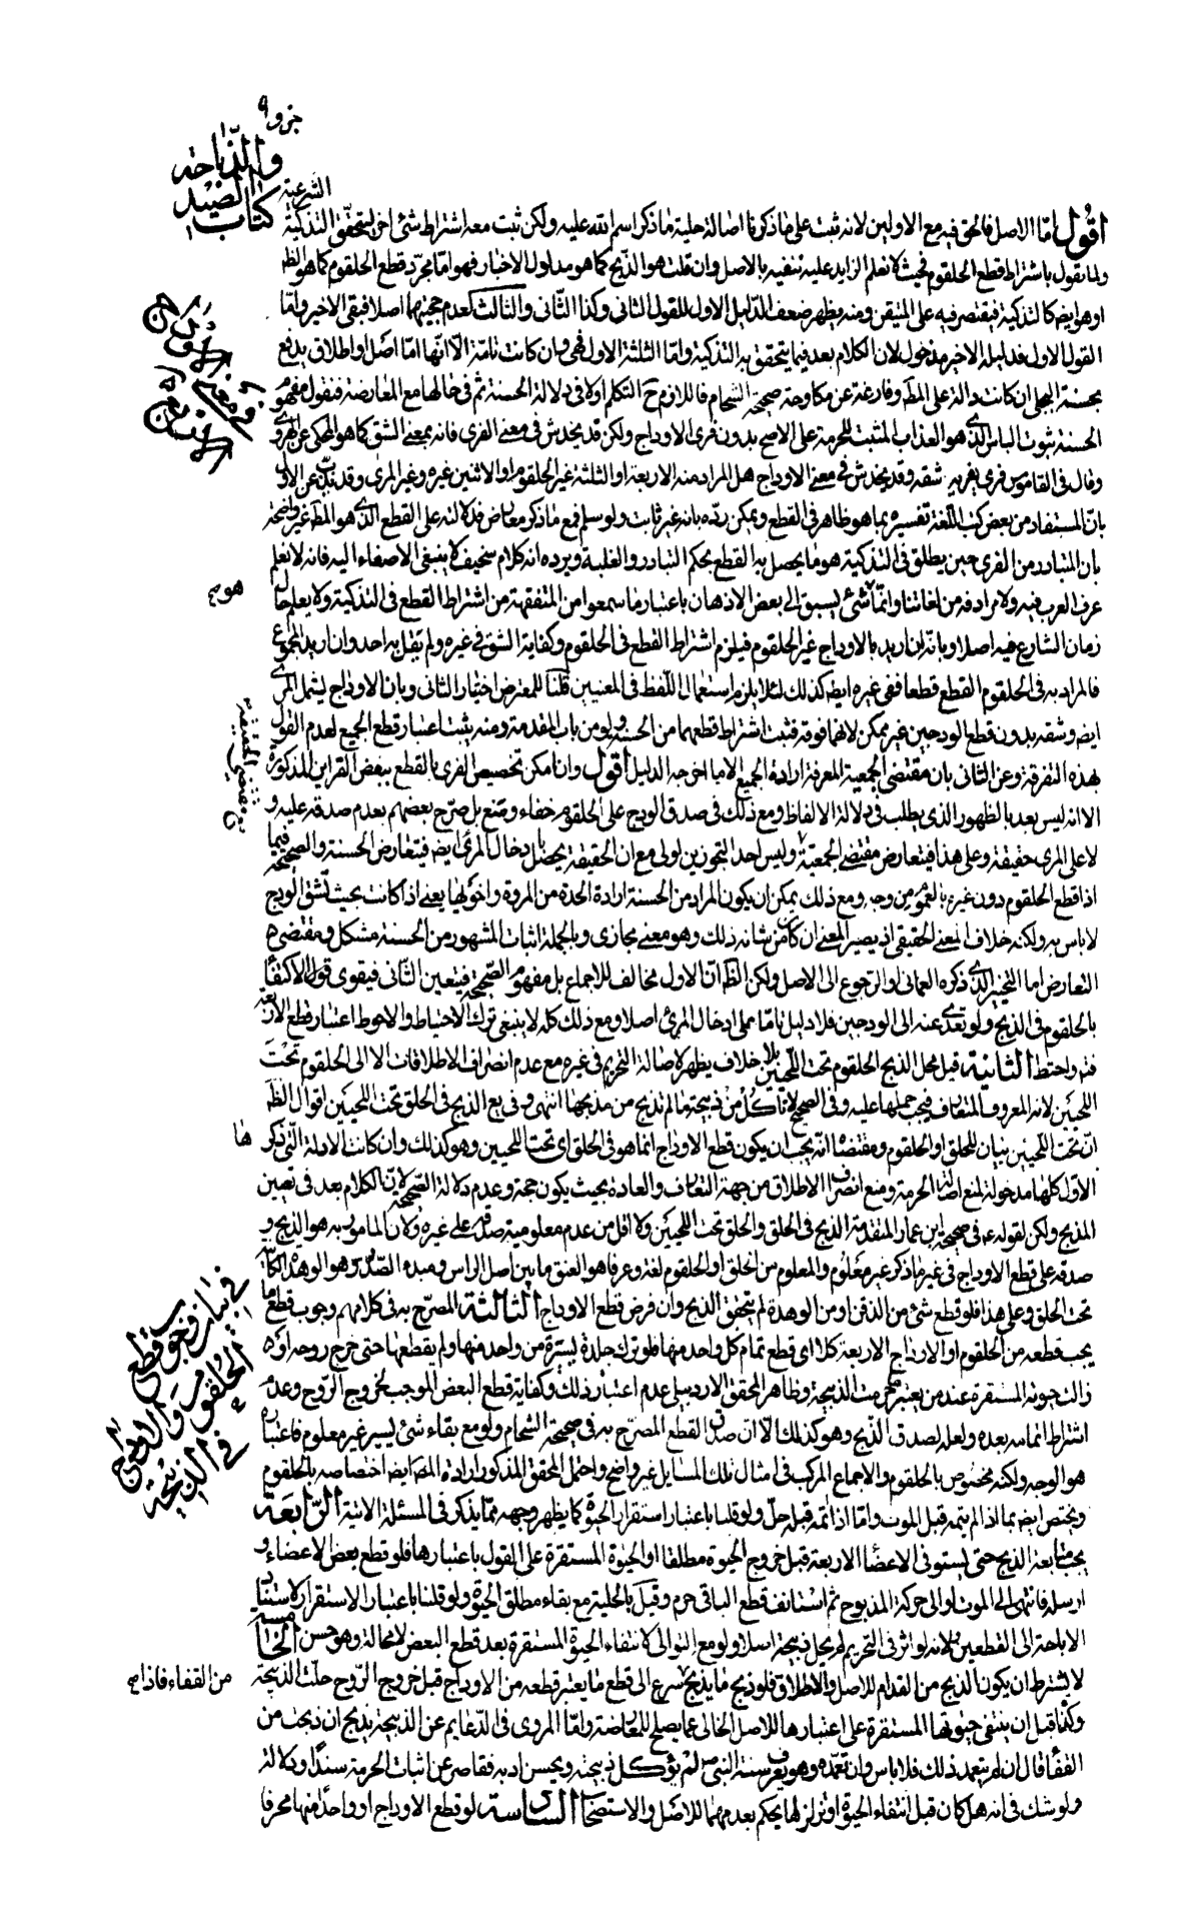 جزو ٩
كتاب الصيد
والذباحة
الشرعية
اقول امّا الاصل فالحق فيه مع الاولين لانه ثبت على ما ذكرنا اصالة حلية ما ذكر اسم الله عليه ولكن ثبت معه اشتراط شئ اخر ليتحقق التذكية
ولما نقول باشتراط قطع الحلقوم فحيث لا نعلم الزايد عليه ننفيه بالاصل وان قلت هو الذبح كما هو مدلول الاخبار فهو امّا مجرّد قطع الحلقوم كما هو الظ
او هو ايضا كالتذكية فيقتصر فيه على المتيقن ومنه يظهر ضعف الدّليل الاول للقول الثانى وكذا الثّانى والثالث لعدم حجيتهما اصلا فبقى الاخير وامّا
القول الاول فدليله الاخير مدخول لان الكلام بعد فيما يتحقق به التذكية وامّا الثلثة الاول فهى وان كانت تامّة الّا انّها امّا اصل او اطلاق يدفع
بحسنة البجلى ان كانت دالة على المط وفارغة عن مكاوحة صحيحة الشحام فاللازم ح التكلم اولا فى دلالة الحسنة ثم فى حالها مع المعارضة فنقول مفهوم
الحسنة ثبوت الباس الذى هو العذاب المثبت للحرمة على الاصح بدون فرى الاوداج ولكن قد يخدش فى معنى الفرى فانه بمعنى الشق كما هو المحكى عن الهروى
وقال فى القاموس فرى يفريه شقه وقد يخدش فى معنى الاوداج هل المراد منه الاربعة او الثلثة غير الحلقوم او الاثنين غيره وغير المرى وقد يذب عن الاول
بانّ المستفاد من بعض كتب اللّغة تفسيره بما هو ظاهر فى القطع ويمكن ردّه بانه غير ثابت ولو سلم فمع ما ذكر معارض فدلالته على القطع الذى هو المط غير واضحة
بان المتبادر من الفرى حين يطلق فى التذكية هو ما يحصل به القطع بحكم التبادر والغلبة ويرده انه كلام سخيف لا ينبغى الاصغاء اليه فانه لا نعلم
عرف العرب فيه ولا مرادفه من لغاتنا وانّما شئ يسبق الى بعض الاذهان باعتبار ما سمعوا من المتفقهة من اشتراط القطع فى التذكية ولا يعلم حال
زمان الشارع فيه اصلا وبانه ان اريد بالاوداج غير الحلقوم فيلزم اشتراط القطع فى الحلقوم وكفاية الشق فى غيره ولم يقل به احد وان اريد المجموع
فالمراد به فى الحلقوم القطع قطعا ففى غيره ايضا كذلك لئلا يلزم استعمال اللّفظ فى المعنيين قلنا للمعترض اختيار الثانى وبان الاوداج يشمل المرى
ايضا وشقه بدون قطع الودجين غير ممكن لانهما فوقه فثبت اشتراط قطعهما من الحسنة ولو من باب المقدمة ومنه يثبت اعتبار قطع الجميع لعدم القول
بهذه التفرقة وعن الثانى بان مقتضى الجمعية المعرفة ارادة الجميع الا ما اخرجه الدليل اقول وان امكن تخصيص الفرى بالقطع ببعض القراين المذكورة
الا انه ليس بعد بالظهور الذى يطلب فى دلالة الالفاظ ومع ذلك فى صدق الودج على الحلقوم خفاء ومنع بل صرّح بعضهم بعدم صدقه عليه و
لا على المرى حقيقة وعلى هذا فيتعارض مقتضى الجمعية وليس احد التجوزين اولى مع ان الحقيقة يحصل ادخال المرئ ايضا فيتعارض الحسنة والصحيحة فيما
اذا قطع الحلقوم دون غيره بالعموم من وجه ومع ذلك يمكن ان يكون المراد من الحسنة ارادة الحدة من المروة واخويها يعنى اذا كانت بحيث تشق الودج
لا باس به ولكنه خلاف المعنى الحقيقى اذ يصير المعنى ان كان من شانه ذلك وهو معنى مجازى وبالجملة اثبات المشهور من الحسنة مشكل ومقتضى
التعارض اما التخيير الذى ذكره العمانى او الرجوع الى الاصل ولكن الظ انّ الاول مخالف للاجماع بل مفهوم الصّحيحة فيتعين الثّانى فيقوى قول الاكتفاء
بالحلقوم فى الذبح ولو تعدى عنه الى الودجين فلا دليل تامّا على ادخال المرئ اصلا ومع ذلك كله لا ينبغى ترك الاحتياط والاحوط اعتبار قطع الاربعة
فتم واحتط الثانية قيل محل الذبح الحلقوم تحت اللّحيين بلا خلاف يظهر لاصالة التحريم فى غيره مع عدم انصراف الاطلاقات الا الى الحلقوم تحت
اللحيين لانه المعروف المتعارف فيجب حملها عليه وفى الصحيح لا تاكل من ذبيحة ما لم تذبح من مذبحها انتهى وفى يع الذبح فى الحلق تحت اللحيين اقول الظ
انّ تحت اللحيين بيان للحلق او الحلقوم ومقتضاه انّه يجب ان يكون قطع الاوداج انما هو فى الحلق اى تحت اللحيين وهو كذلك وان كانت الادلة الّتى ذكر
الاوّل كلها مدخولة لمنع اصالة الحرمة ومنع انصراف الاطلاق من جهة التعارف والعادة بحيث يكون حجة وعدم دلالة الصّحيحة لانّ الكلام بعد فى تعيين
المذبح ولكن لقوله ع فى صحيحة ابن عمار المتقدمة الذبح فى الحلق والحلق تحت اللحيين ولا اقل من عدم معلومية صدقه على غيره ولان المامور به هو الذبح و
صدقه على قطع الاوداج فى غير ما ذكر غير معلوم والمعلوم من الحلق او الحلقوم لغة وعرفا هو العنق ما بين اصل الراس ومبدء الصّدر وهو الوهدة الكاينة
تحت الحلق وعلى هذا فلو قطع شئ من الذقن او من الوهدة لم يتحقق الذبح وان فرض قطع الاوداج الثالثة المصرّح به فى كلامهم وجوب قطع ما
يجب قطعه من الحلقوم او الاوداج الاربعة كلا اى قطع تمام كل واحد منها فلو ترك جلدة يسيرة من واحد منها ولم يقطعها حتى خرج روحه او
زالت حيوته المستقرة عند من يعتبر حرمت الذبيحة وظاهر المحقق الاردبيلى عدم اعتبار ذلك وكفاية قطع البعض الموجب لخروج الرّوح وعدم
اشتراط اتمامه بعده ولعله لصدق الذبح وهو كذلك الّا ان صدق القطع المصرّح به فى صحيحة الشحام ولو مع بقاء شئ يسير غير معلوم فاعتباره
هو الوجه ولكنه مخصوص بالحلقوم والاجماع المركب فى امثال تلك المسايل غير واضح واحتمل المحقق المذكور ارادة المص ايضا اختصاصه بالحلقوم
ويختص ايضا بما اذا لم يتمه قبل الموت وامّا اذا اتمّه قبله حلّ ولو قلنا باعتبار استقرار الحيوة كما يظهر وجهه ممّا يذكر فى المسئلة الاتية الرّابعة
يجب متابعة الذبح حتى يستوفى الاعضاء الاربعة قبل خروج الحيوة مطلقا او الحيوة المستقرة على القول باعتبارها فلو قطع بعض الاعضاء و
ارسله فانتهى الى الموت او الى حركة المذبوح ثم استانف قطع الباقى حرم وقيل بالحلية مع بقاء مطلق الحيوة ولو قلنا باعتبار الاستقرار لاستناد
الاباحة الى القطعين ولانه لو اثر فى التحريم لم يحل ذبيحة اصلا ولو مع التوالى لانتفاء الحيوة المستقرة بعد قطع البعض لا محالة وهو حسن الخامسة
لا يشترط ان يكون الذبح من القدام للاصل والاطلاق فلو ذبح ما يذبح سرع الى قطع ما يعتبر قطعه من الاوداج قبل خروج الرّوح حلّت الذبيحة
وكذا قبل ان ينتفى حيوتها المستقرة على اعتبارها للاصل الخالى عما يصلح للمعارضة وامّا المروى فى الدّعايم عن الذبيحة يذبح ان ذبحت من
القفا قال ان لم يتعمد ذلك فلا باس وان تعمّده وهو يعرف سنة النبى ص لم يؤكل ذبيحته ويحسن ادبه فقاصر عن اثبات الحرمة سندا ودلالة
ولو شك فى انه هل كان قبل انتفاء الحيوة او تزلزلها يحكم بعدمهما للاصل والاستصحاب السادسة لو قطع الاوداج او واحدا منها محرفا
فى معنى
هو يم
مقتضى الحقيقة
ها
فى بيان وجوب قطع
الحلقوم والاوداج
فى الذبيحة
من القفاء فاذا يم